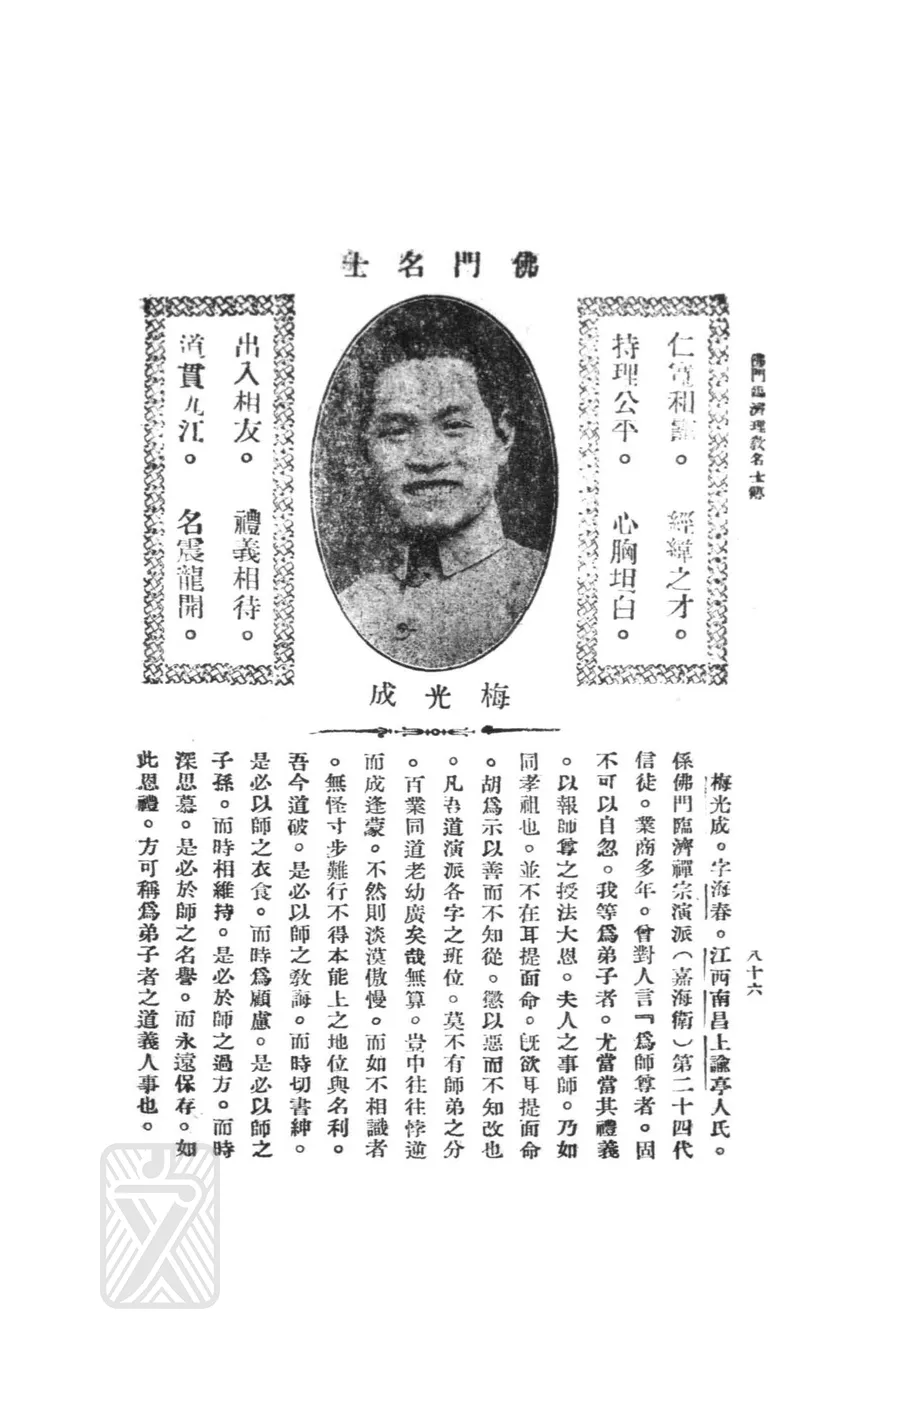 佛門臨濟理教名士錄
八十六
佛門名士
仁寬和靄。經緯之才。
持理公平。心胸坦白。
出入相友。禮義相待。
道貫九江。名震龍開。
梅光成
梅光成。字海春。江西南昌上諭亭人氏。
係佛門臨濟禪宗演派(嘉海衛)第二十四代
信徒。業商多年。曾對人言『爲師尊者。固
不可以自忽。我等爲弟子者。尤當當其禮義
。以報師尊之授法大恩。夫人之事師。乃如
同孝祖也。並不在耳提面命。旣欲耳提面命
。胡爲示以善而不知從。懲以惡而不知改也
。凡吾道演派各字之班位。莫不有師弟之分
。百業同道老幼廣矣哉無算。豈中往往悖逆
而成逢蒙。不然則淡漠傲慢。而如不相識者
。無怪寸步難行不得本能上之地位與名利。
吾今道破。是必以師之教誨。而時切書紳。
是必以師之衣食。而時爲顧慮。是必以師之
子孫。而時相維持。是必於師之過方。而時
深思慕。是必於師之名譽。而永遠保存。如
此恩禮。方可稱爲弟子者之道義人事也。